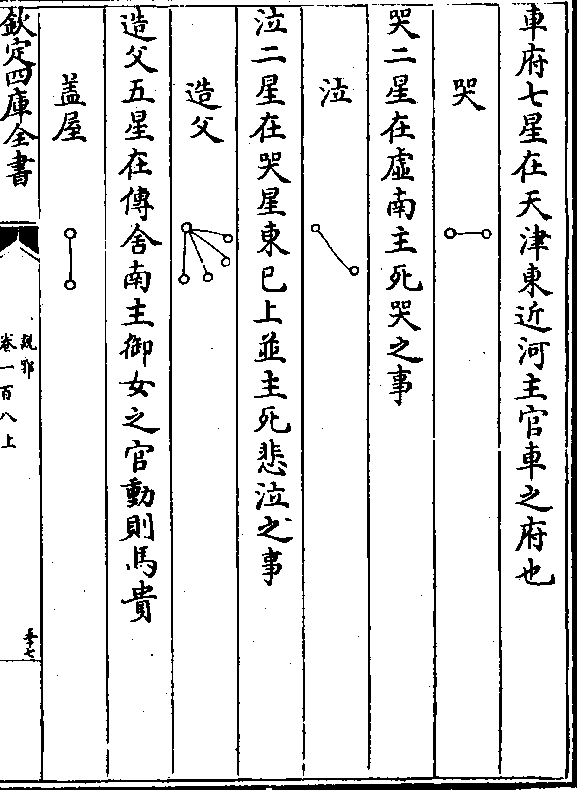 車府七星在天津東近河主官車之府也
哭
哭二星在虛南主死哭之事
泣
泣二星在哭星東已上並主死悲泣之事
造父
造父五星在傳舍南主御女之官動則馬貴
盖屋
欽定四庫全書
說郛
卷一百八上
五十七